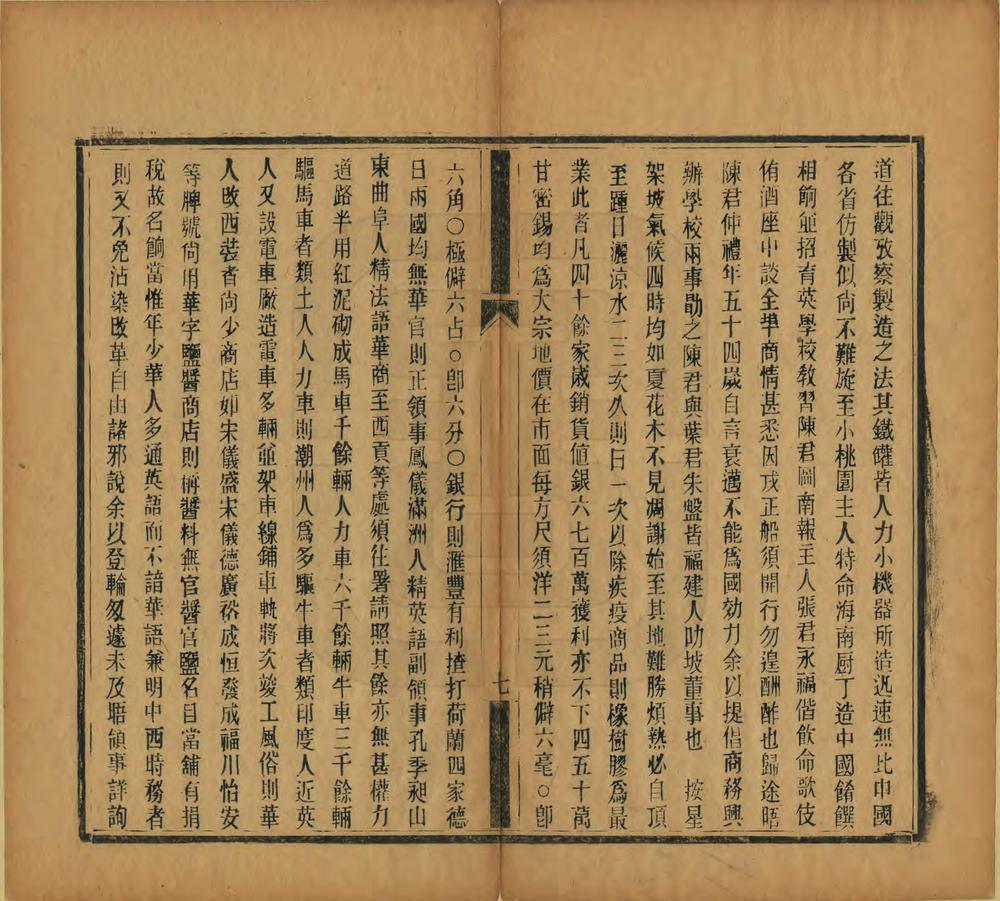 道往觀攷察製造之法其鐵罐皆人力小機器所造迅速無比中國
各省仿製似尚不難旋至小桃園主人特命海南厨丁造中國餚饌
相餉並招育英學校教習陳君圖南報王人張君永福偕飲命歌伎
侑酒座中談全埠商情甚悉因戎正船須開行勿遑酬酢也歸途晤
陳君仲禮年五十四歲自言衰邁不能爲國効力余以提倡商務興
辦學校兩事勖之陳君與葉君朱盤皆福建人叻坡董事也　按星
架坡氣候四時均如夏花木不見凋謝始至其地難勝煩熱必自頂
至踵日灑涼水二三次久則日一次以除疾疫商品則橡樹膠爲最
業此者凡四十餘家歲銷貨値銀六七百萬獲利亦不下四五十萬
甘密錫均爲大宗地價在市面每方尺須洋二三元稍僻六毫○卽
七
六角○極僻六占○卽六分○銀行則滙豐有利揸打荷蘭四家德
日兩國均無華官則正領事鳳儀滿洲人精英語副領事孔季昶山
東曲阜人精法語華商至西貢等處須往署請照其餘亦無甚權力
道路半用紅泥砌成馬車千餘輛人力車六千餘輛牛車三千餘輛
驅馬車者類土人人力車則潮州人爲多驅牛車者類印度人近英
人又設電車厰造電車多輛並架車線鋪車軌將次竣工風俗則華
人改西裝者尚少商店如宋儀盛宋儀德廣裕成恒發成福川怡安
等牌號尙用華字鹽醬商店則稱醬料無官醬官鹽名目當鋪有捐
稅故名餉當惟年少華人多通英語而不諳華語兼明中西時務者
則又不免沾染改革自由諸邪說余以登輪匆遽未及晤領事詳詢